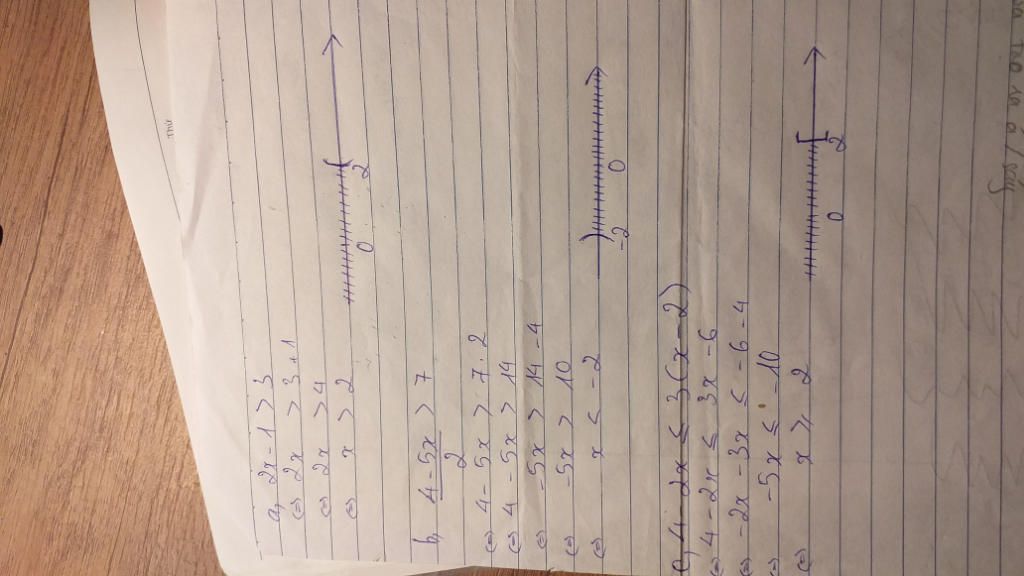 a, 2x - 1 > 3
⇔ 2x > 3 + 1
⇔ 2x > 4
⇔ x > 2
0 2
b, (4 - 5x)/2 > 7
⇔ 4 - 5x > 7 . 2
⇔ 4 - 5x > 14
⇔ -5x > 14 - 4
⇔ -5x > 10
⇔ x ≤ -2
-2 0
c, 4 - 2x ≤ 3(x - 2)
⇔ 4 - 2x ≤ 3x - 6
⇔ -2x - 3x ≤ -6 - 4
⇔ -5x ≤ -10
⇔ x ≥ 2
0 2